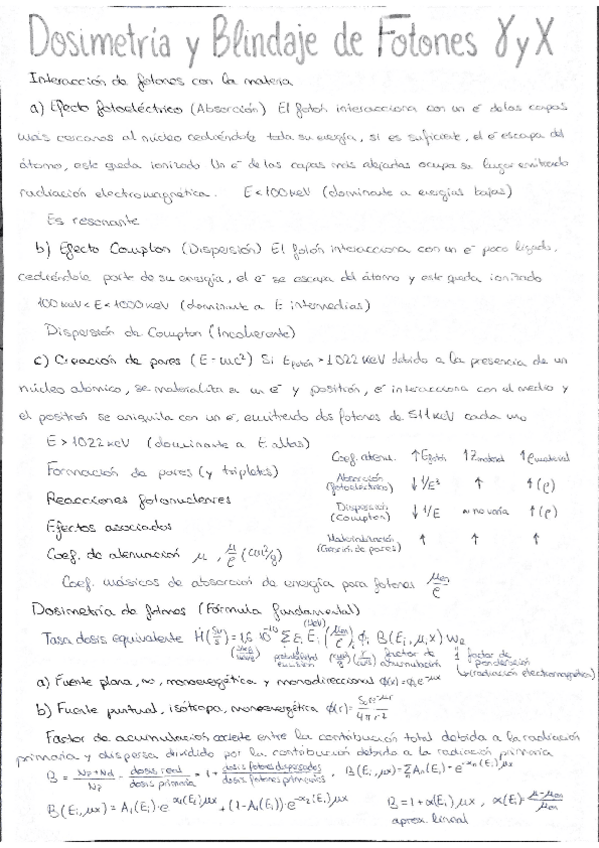 Dosimetría y Blindaje de Fotones γ y X
Interacción de fotones con la materia
a) Efecto fotoeléctrico (Absorción) El fotón interacciona con un e⁻ de las capas
más cercanas al núcleo cediéndole toda su energía, si es suficiente, el e⁻ escapa del
átomo, este queda ionizado Un e⁻ de las capas más alejadas ocupa su lugar emitiendo
radiación electromagnética. E<100keV (dominante a energías bajas)
Es resonante
b) Efecto Compton (Dispersión) El fotón interacciona con un e⁻ poco ligado,
cediéndole parte de su energía, el e⁻ se escapa del átomo y este queda ionizado
100 keV < E < 1000 keV (dominante a E intermedias)
Dispersión de Compton (Incoherente)
c) Creación de pares (E=mc²) Si Efotón > 1022 KeV debido a la presencia de un
núcleo atómico, se materializa en un e⁻ y positrón, e⁻ interacciona con el medio y
el positrón se aniquila con un e⁻, emitiendo dos fotones de 511 keV cada uno
E > 1022 keV (dominante a E altas)
Formación de pares (y tripletes)
Reacciones fotonucleares
Efectos asociados
Coef. de atenuación μ, μ/ρ (cm²/g)
Coef. atenu. ↑Efotón ↑Zmaterial ↑ρmaterial
Absorción (fotoeléctrico) ↓ 1/E³ ↑ ↑(ρ)
Dispersión (Compton) ↓ 1/E ≈ no varía ↑(ρ)
Materialización (Creación de pares) ↑ ↑ ↑
Coef. másicos de absorción de energía para fotones μen/ρ
Dosimetría de fotones (Fórmula fundamental)
Tasa dosis equivalente Ḣ(Sv/s) = 1,6 10⁻¹⁰ ΣεᵢEᵢ(μen/ρ)ᵢ ϕᵢ B(Eᵢ,μ,x) WR
(MeV) factor de acumulación 1 factor de ponderación (radiación electromagnética)
a) Fuente plana, ∞, monoenergética y monodireccional ϕ(x)=ϕ₀e⁻μx
b) Fuente puntual, isótropa, monoenergética ϕ(r)= S₀e⁻μr / 4πr²
Factor de acumulación cociente entre la contribución total debida a la radiación
primaria y dispersa dividido por la contribución debida a la radiación primaria
B = Np+Nd / Np = dosis real / dosis primaria = 1+ dosis fotones dispersados / dosis fotones primarios, B(Eᵢ,μx)=Σn An(Eᵢ)·e^-αn(Eᵢ)μx
B(Eᵢ,μx) = A₁(Eᵢ)·e^-α₁(Eᵢ)μx + (1-A₁(Eᵢ))·e^-α₂(Eᵢ)μx B=1+α(Eᵢ)μx, α(Eᵢ)= μ-μen / μen
aprox. lineal